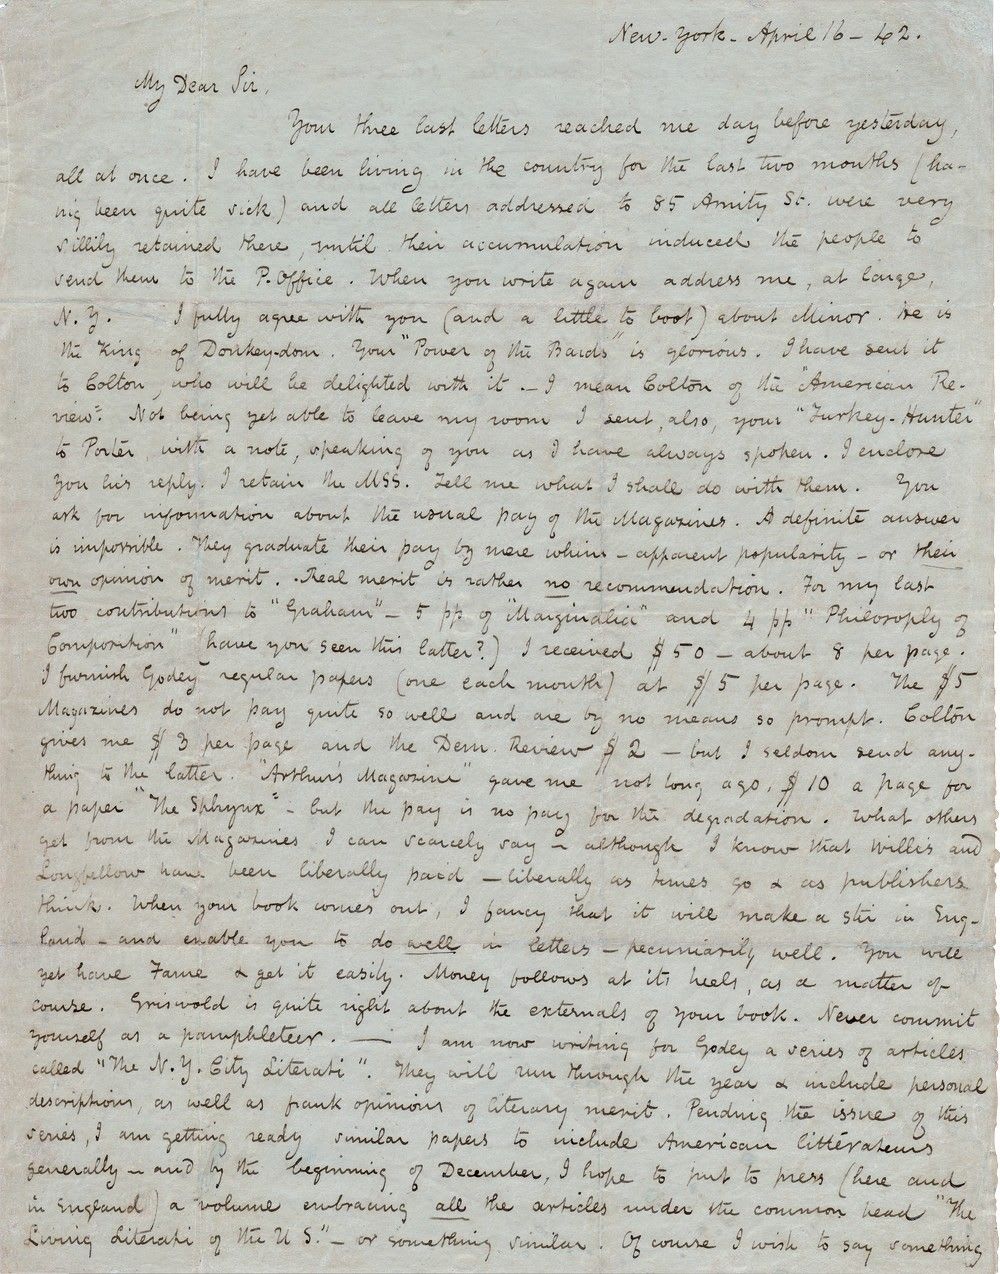 New-York - April 16 - 42.
My Dear Sir,
Your three last letters reached me day before yesterday,
all at once. I have been living in the country for the last two months (ha-
nig been quite sick) and all letters addressed to 85 Amity St. were very
sillily retained there, until their accumulation induced the people to
send them to the P. Office. When you write again address me, at large,
N. Y. I fully agree with you (and a little to boot) about Minor. He is
the King of Donkey-dom. Your "Power of the Bards" is glorious. I have sent it
to Colton, who will be delighted with it. - I mean Colton of the "American Re-
view". Not being yet able to leave my room I sent, also, your "Turkey-Hunter"
to Porter, with a note, speaking of you as I have always spoken. I enclose
you his reply. I retain the MSS. Tell me what I shall do with them. You
ask for information about the usual pay of the Magazines. A definite answer
is impossible. They graduate their pay by mere whim - apparent popularity - or their
own opinion of merit. Real merit is rather no recommendation. For my last
two contributions to "Graham" - 5 pp of "Marginalia" and 4 pp "Philosophy of
Composition" (have you seen this latter?) I received $50 - about 8 per page.
I furnish Godey regular papers (one each month) at $5 per page. The $5
Magazines do not pay quite so well and are by no means so prompt. Colton
gives me $3 per page and the Dem. Review $2 - but I seldom send any-
thing to the latter. "Arthur's Magazine" gave me not long ago, $10 a page for
a paper "The Sphynx" - but the pay is no pay for the degradation. What others
get from the Magazines I can scarcely say - although I know that Willis and
Longfellow have been liberally paid - liberally as times go & as publishers
think. When your book comes out, I fancy that it will make a stir in Eng-
land - and enable you to do well in letters - pecuniarily well. You will
yet have Fame & get it easily. Money follows at its heels, as a matter of
course. Griswold is quite right about the externals of your book. Never commit
yourself as a pamphleteer. — I am now writing for Godey a series of articles
called "The N. Y. City Literati". They will run through the year & include personal
descriptions, as well as frank opinions of literary merit. Pending the issue of this
series, I am getting ready similar papers to include American littérateurs
generally - and by the beginning of December, I hope to put to press (here and
in England) a volume embracing all the articles under the common head "The
Living Literati of the U S." - or something similar. Of course I wish to say something